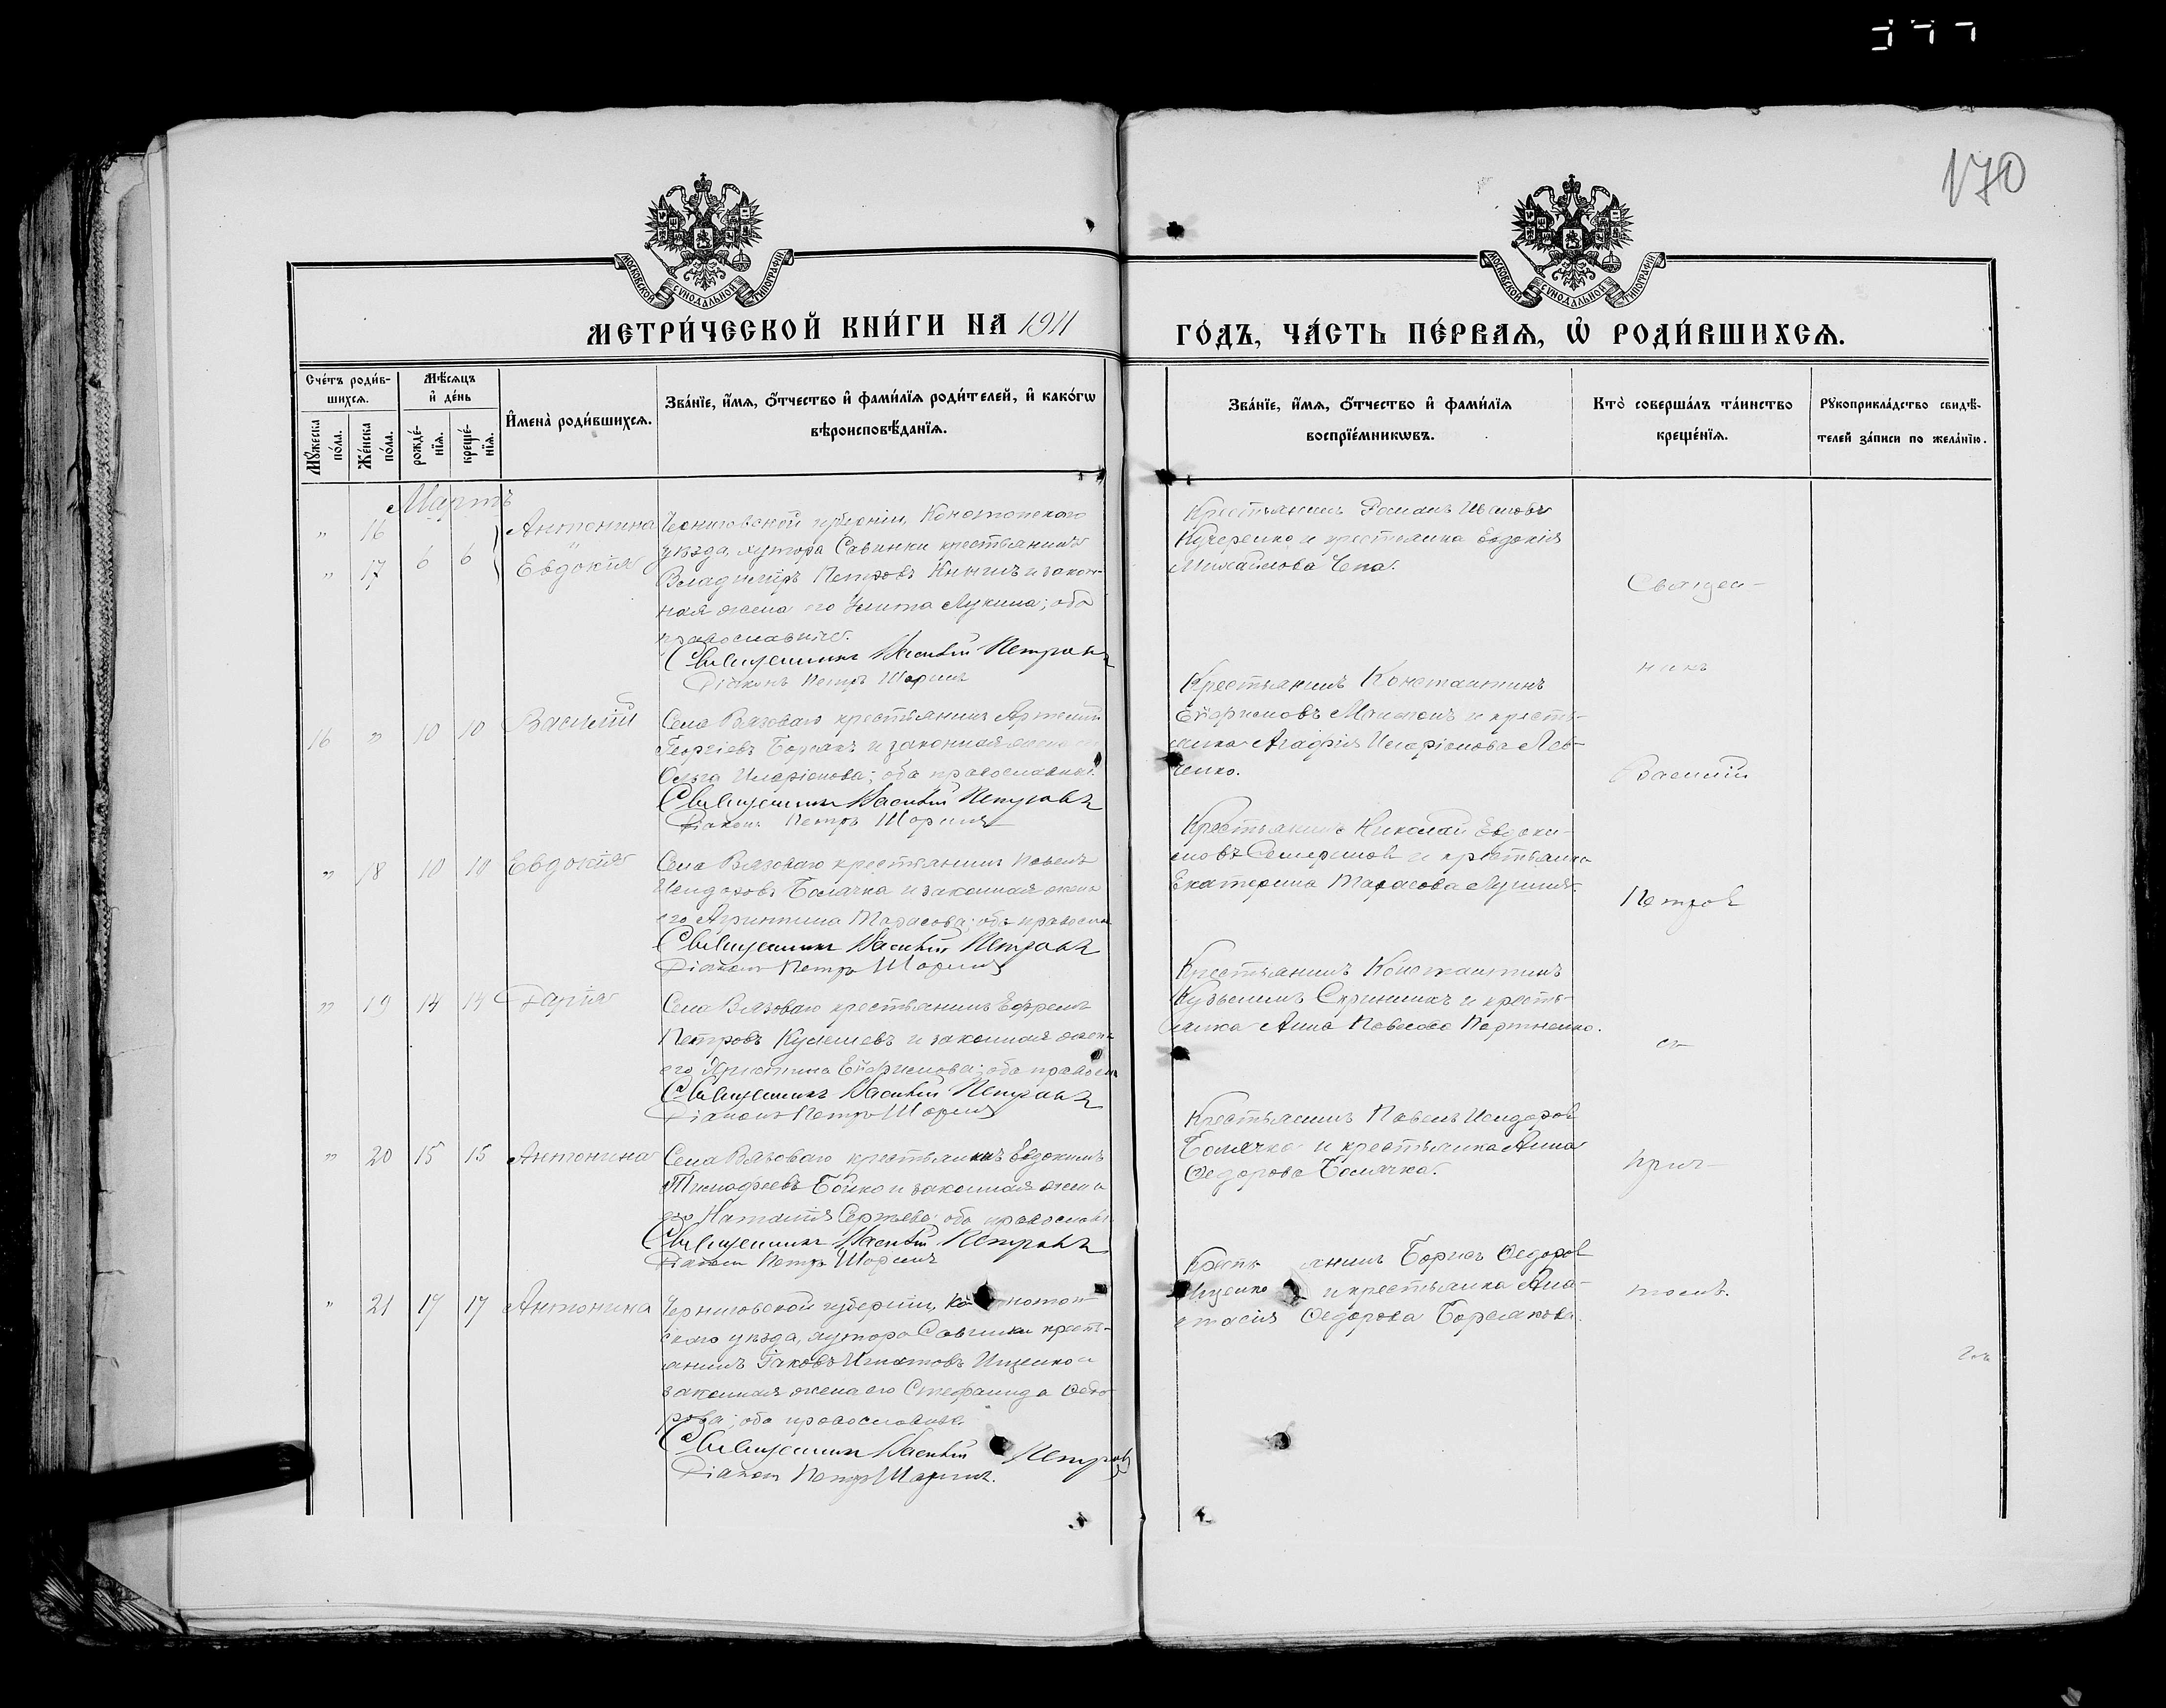 170
МОСКОВСКОЙ СѴНОДАЛЬНОЙ ТИПОГРАФІИ
МОСКОВСКОЙ СѴНОДАЛЬНОЙ ТИПОГРАФІИ
МЕТРИ́ЧЕСКОЙ КНИ́ГИ НА 1911
ГО́ДЪ, ЧА́СТЬ ПЕ́РВАѦ, Ѡ҆ РОДИ́ВШИХСѦ.
Сче́тъ роди́в-
шихсѧ.
Мꙋ́жеска по́ла.
Же́нска по́ла.
Мѣ́сѧцъ
и҆ де́нь
рожде́-
нїѧ.
креще́-
нїѧ.
И҆мена̀ роди́вшихсѧ.
Зва́нїе, и҆́мѧ, ѻ҆́тчество и҆ фами́лїѧ роди́телей, и҆ како́гѡ
вѣроисповѣ́данїѧ.
Зва́нїе, и҆́мѧ, ѻ҆́тчество и҆ фами́лїѧ
воспрїе́мникѡвъ.
Кто̀ соверша́лъ та́инство
креще́нїѧ.
Рꙋкоприкла́дство свидѣ́-
телей за́писи по жела́нїю.
Мартъ
" 16 Антонина
" 17 6 6 Евдокія
Черниговской губерніи, Конотопскаго
уѣзда, хутора Савинки крестьянинъ
Владиміръ Петровъ и закон-
ная жена его Улита Лукина; оба
православные.
Священникъ Василій Петровъ
Діаконъ Петръ
Крестьянинъ Романъ Ивановъ
Кучеренко и крестьянка Евдокія
Михайлова
16 " 10 10 Василій
Села Вязоваго крестьянинъ Артемій
Георгіевъ и законная жена
Ольга Иларіонова; оба православные.
Священникъ Василій Петровъ
Діаконъ Петръ
Крестьянинъ Константинъ
и кресть-
янка Агафія Иларіонова Лев-
ченко.
" 18 10 10 Евдокія
Села Вязоваго крестьянинъ Павелъ
Исидоровъ Болячка и законная жена
его Агриппина Тарасова; оба правосла
Священникъ Василій Петровъ
Діаконъ Петръ
Крестьянинъ Николай Евдоки-
мовъ и крестьянка
Екатерина Тарасова
" 19 14 14 Дарія
Села Вязоваго крестьянинъ Ефремъ
Петровъ Кулешевъ и законная жена
его Христина; оба правосл
Священникъ Василій Петровъ
Діаконъ Петръ
Крестьянинъ Константинъ
Кузьминъ и кресть-
янка Анна Павлова
" 20 15 15 Антонина
Села Вязоваго крестьянинъ Евдокимъ
Тимофеевъ Бойко и законная жена
его Наталія Сергѣева; оба православ
Священникъ Василій Петровъ
Діаконъ Петръ
Крестьянинъ Павелъ Исидоровъ
Болячка и крестьянка Анна
Ѳедорова Болячка.
" 21 17 17 Антонина
Черниговской губерніи, Конотоп
скаго уѣзда, хутора Савинки кресть-
янинъ Іаковъ Игнатовъ Ищенко и
законная жена его Стефанида Ѳедо-
рова; оба православные.
Священникъ Василій Петровъ
Діаконъ Петръ
Крестьянинъ Борисъ Ѳедоровъ
Ищенко и крестьянка Ана-
стасія Ѳедорова
Священ-
никъ
Василій
Петровъ
съ
прич-
томъ.